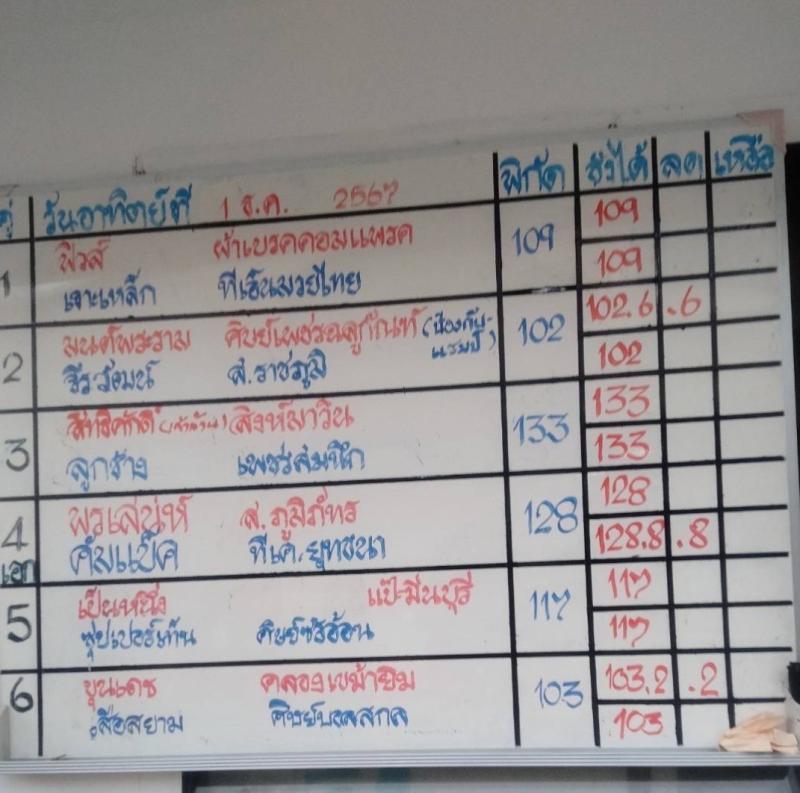 คู่ วันอาทิตย์ที่ 1 ธ.ค. 2567 พิกัด ชั่งได้ ลด เหลือ
1 ฟิวส์ ผ้าเบรคคอมแพรค 109 109
เจาะเหล็ก ทีเอ็นมวยไทย 109
2 มนต์พระราม ศิษย์เพชรอลูกัณฑ์ (ป้องกันแชมป์) 102 102.6 .6
ธีรวัฒน์ ส.ราชภูมิ 102
3 สิทธิศักดิ์ สิงห์มาวิน 133 133
ลูกช้าง เพชรสมนึก 133
4 พรเสน่ห์ ส.ภูมิภัทร 128 128
เอก คัมแบ็ค ที.เค.ยุทธนา 128.8 .8
5 เป็นหนึ่ง แป๊ะมีนบุรี 117 117
ซุปเปอร์เท่น 117
6 ขุนเดช คลองเขม้ายิม 103 103.2 .2
เสือสยาม ศิษย์บอสสกล 103